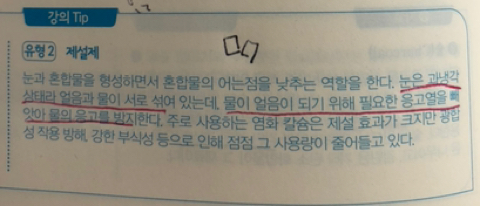 강의 Tip
유형 2 제설제
눈과 혼합물을 형성하면서 혼합물의 어는점을 낮추는 역할을 한다. 눈은 과냉각
상태라 얼음과 물이 서로 섞여 있는데, 물이 얼음이 되기 위해 필요한 응고열을 빼
앗아 물의 응고를 방지한다. 주로 사용하는 염화 칼슘은 제설 효과가 크지만 광합
성 작용 방해, 강한 부식성 등으로 인해 점점 그 사용량이 줄어들고 있다.